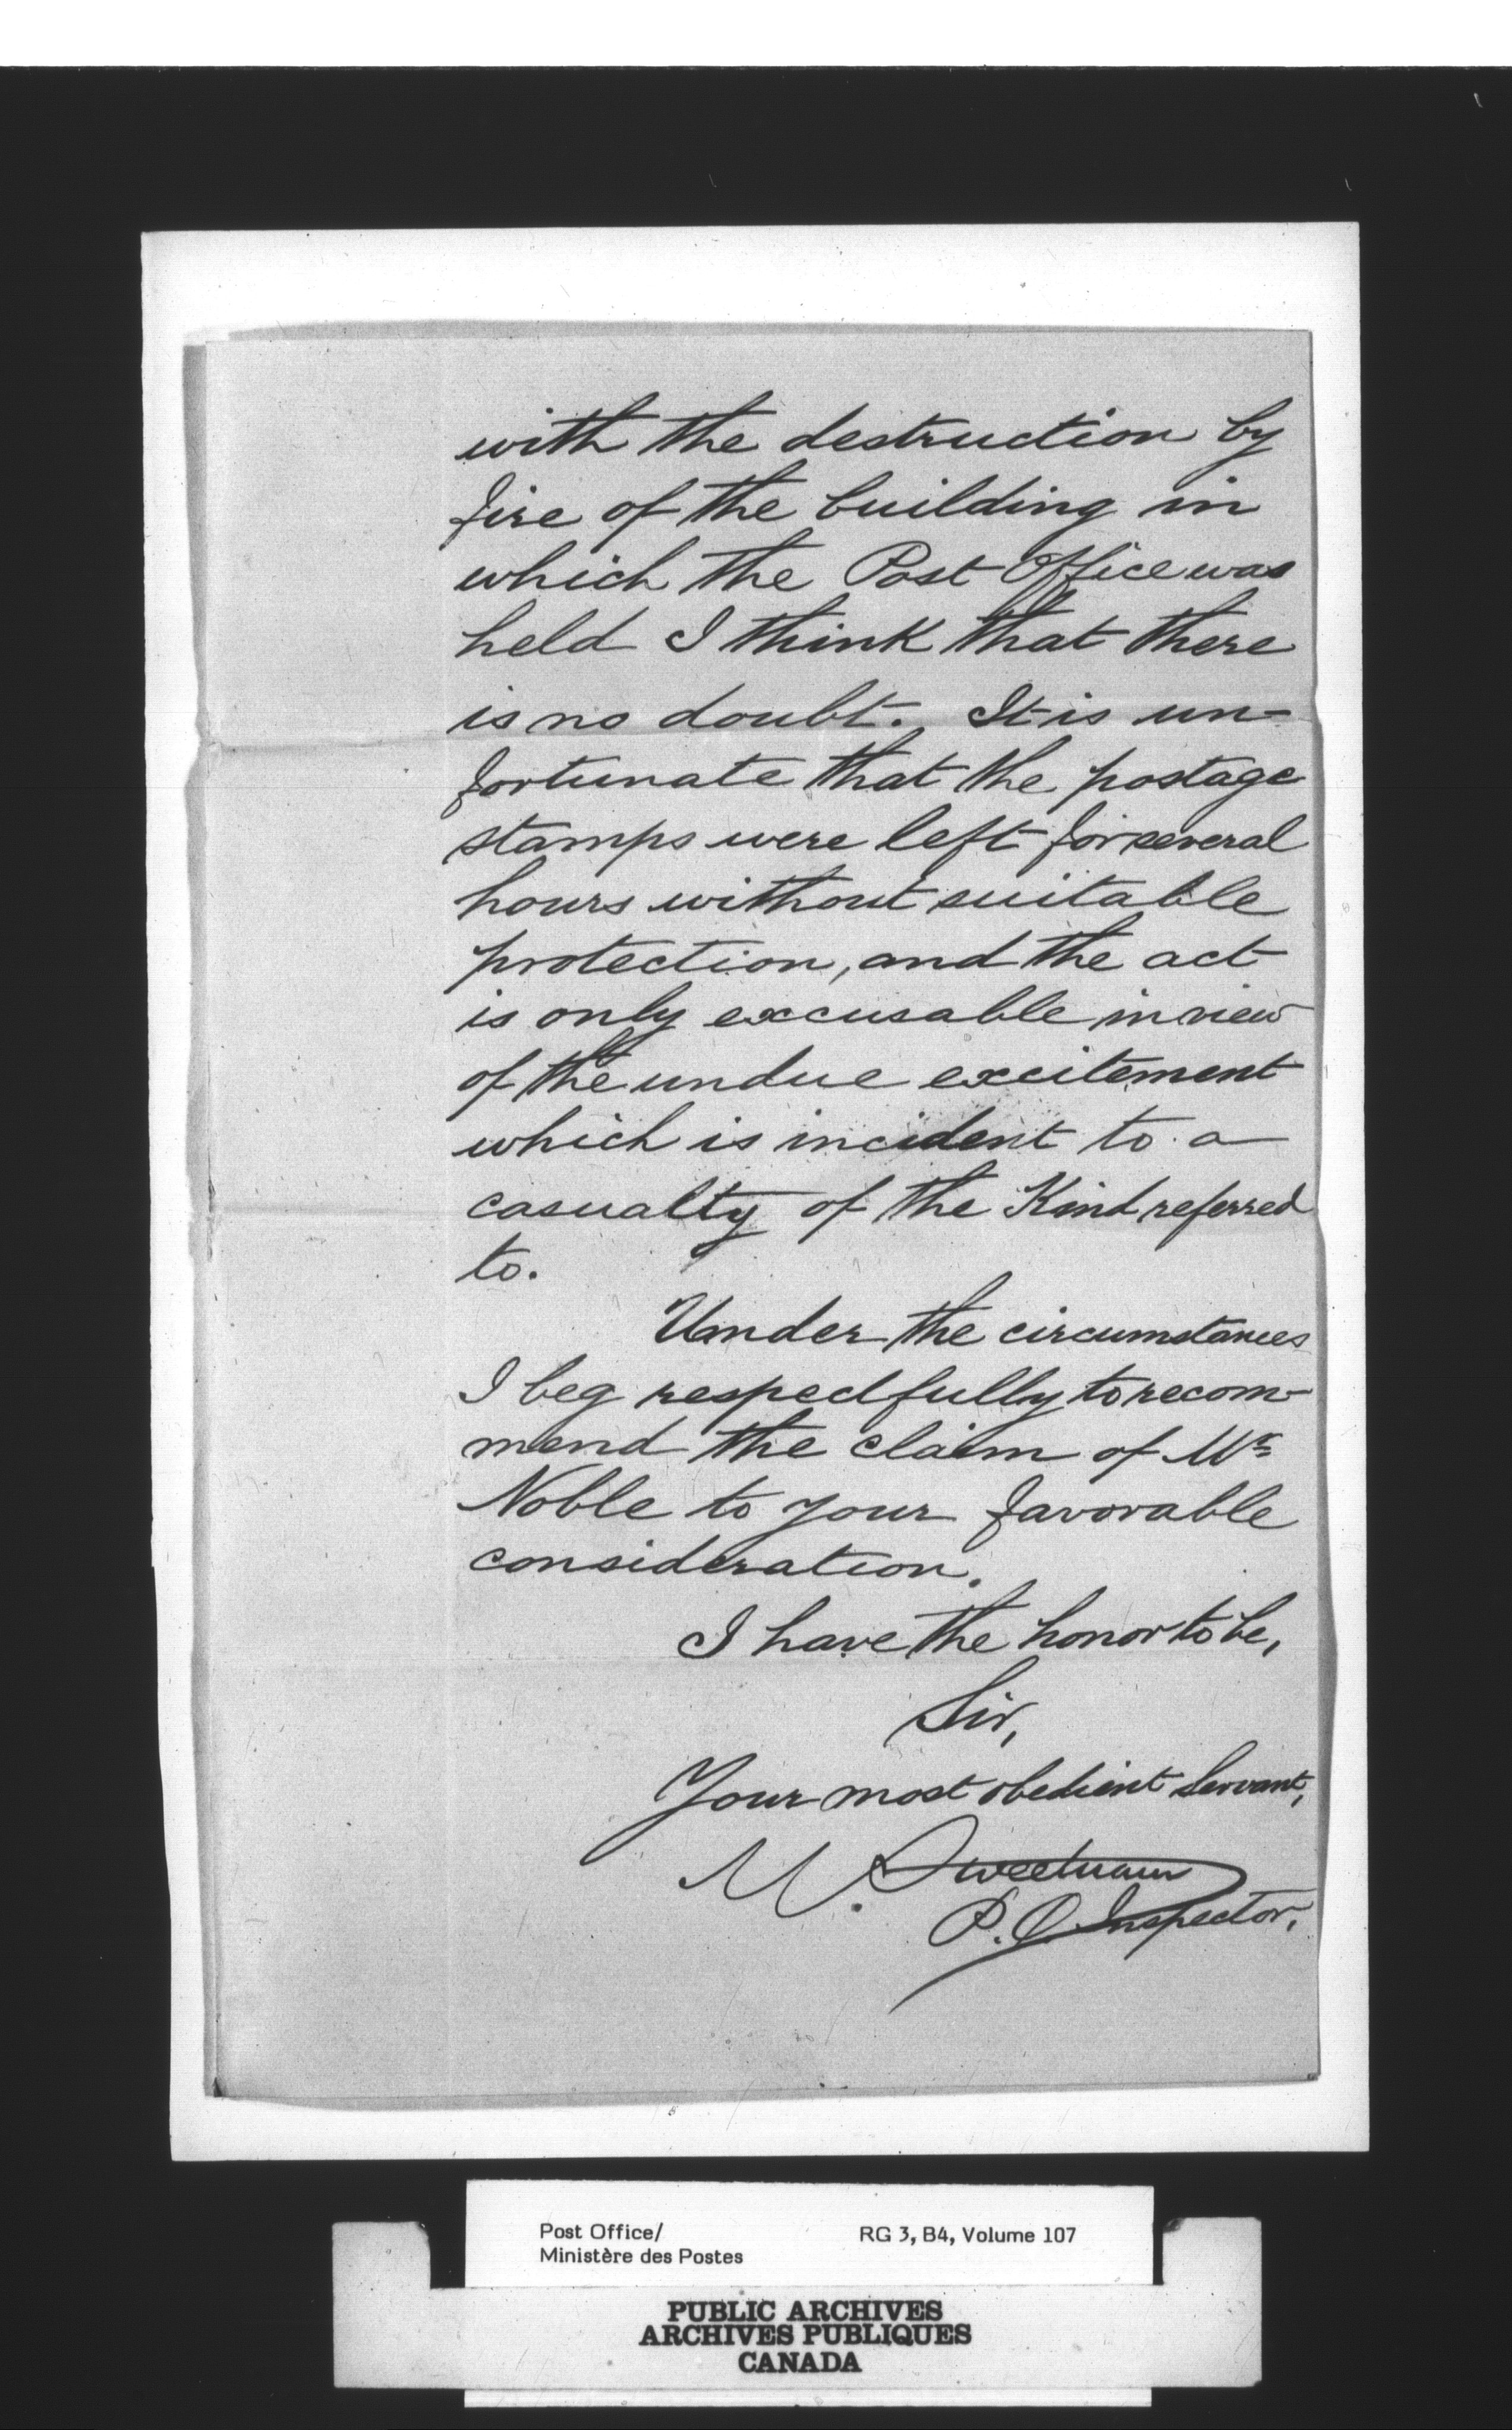 with the destruction by
fire of the building in
which the Post Office was
held I think that there
is no doubt. It is un-
fortunate that the postage
stamps were left for several
hours without suitable
protection, and the act
is only excusable in view
of the undue excitement
which is incident to a
casualty of the Kind referred
to.
Under the circumstances
I beg respectfully to recom-
mend the claim of Mr
Noble to your favorable
consideration.
I have the honor to be,
Sir,
Your most obedient Servant,
M. Sweetnam
P.O. Inspector.
Post Office/ RG 3, B4, Volume 107
Ministère des Postes
PUBLIC ARCHIVES
ARCHIVES PUBLIQUES
CANADA